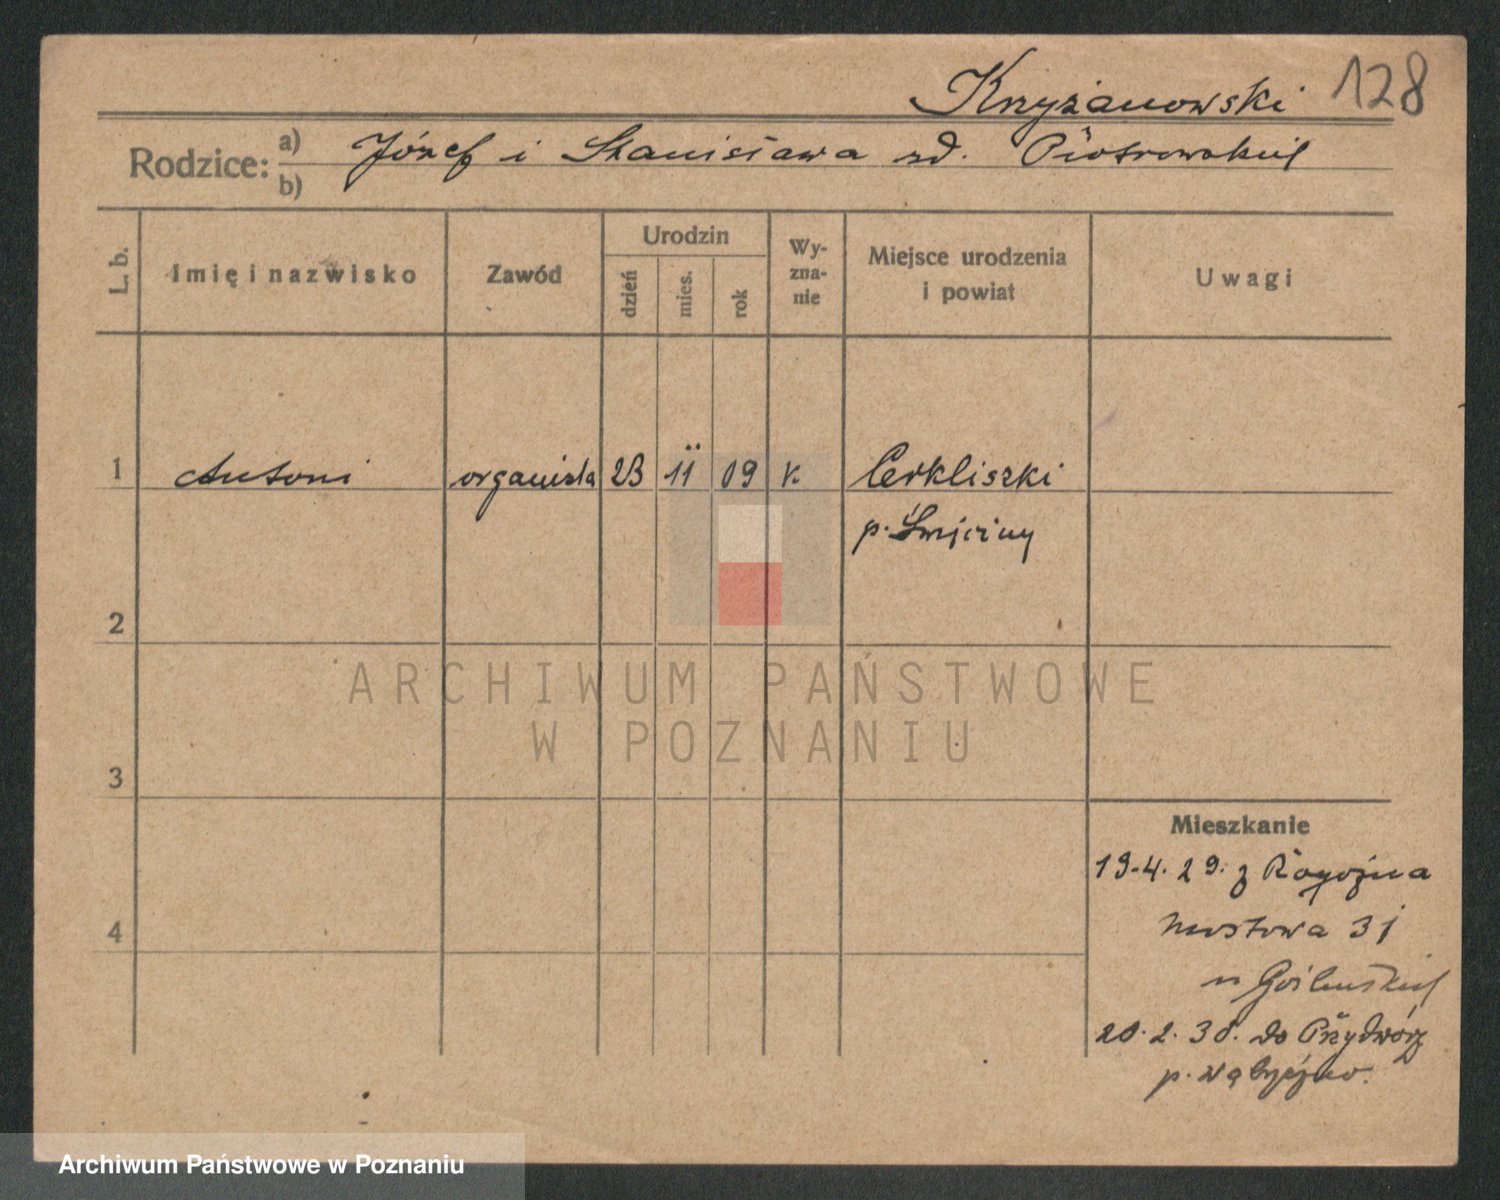 Krzyżanowski 128
Rodzice: a) Józef i Stanisława zd.
b)
L. b.
Imię i nazwisko
Zawód
Urodzin
dzień
mies.
rok
Wy-
zna-
nie
Miejsce urodzenia
i powiat
Uwagi
1 Antoni organista 23 11 09 k. Cerkliszki
p.
2
3
4
ARCHIWUM PAŃSTWOWE
W POZNANIU
Mieszkanie
19.4.29. z Rogoźna
Mostowa 31
u
20.2.30. do Przydwórz
p.
Archiwum Państwowe w Poznaniu